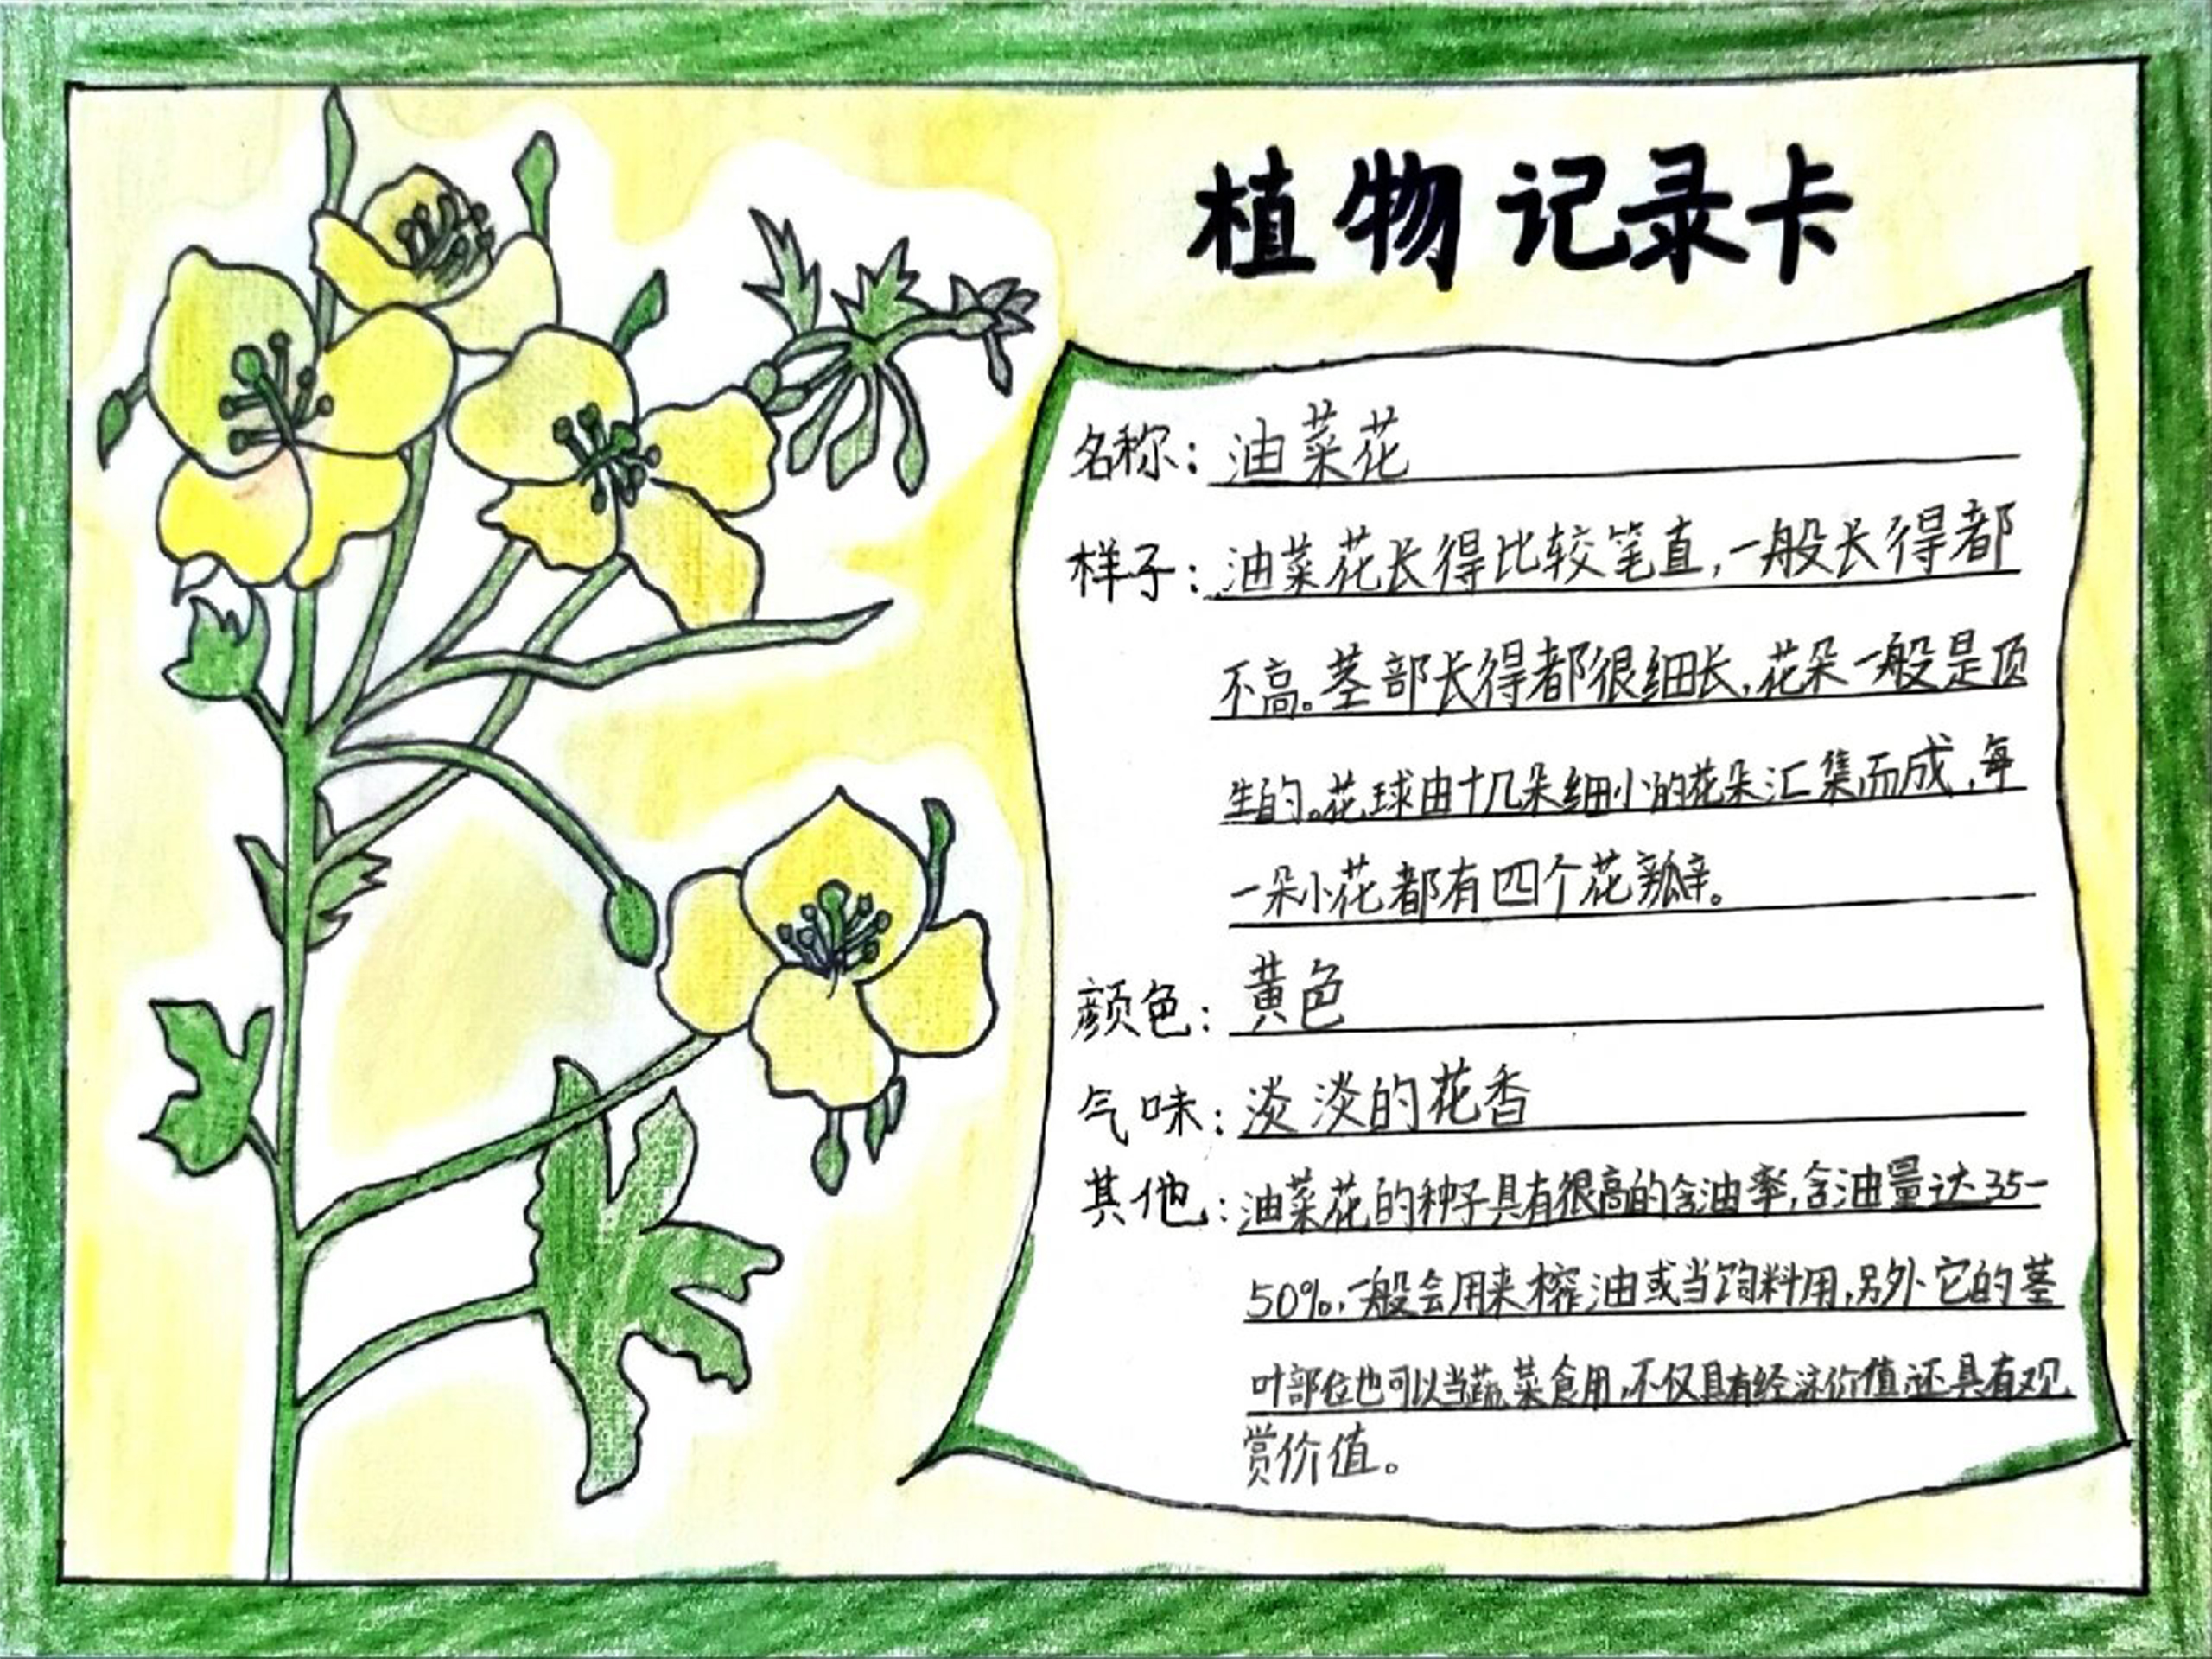 植物记录卡
名称：油菜花
样子：油菜花长得比较笔直，一般长得都
不高。茎部长得都很细长，花朵一般是顶
生的。花球由十几朵细小的花朵汇集而成，每
一朵小花都有四个花瓣。
颜色：黄色
气味：淡淡的花香
其他：油菜花的种子具有很高的含油率，含油量达35-
50%，一般会用来榨油或当饲料用，另外它的茎
叶部位也可以当蔬菜食用，不仅具有经济价值，还具有观
赏价值。